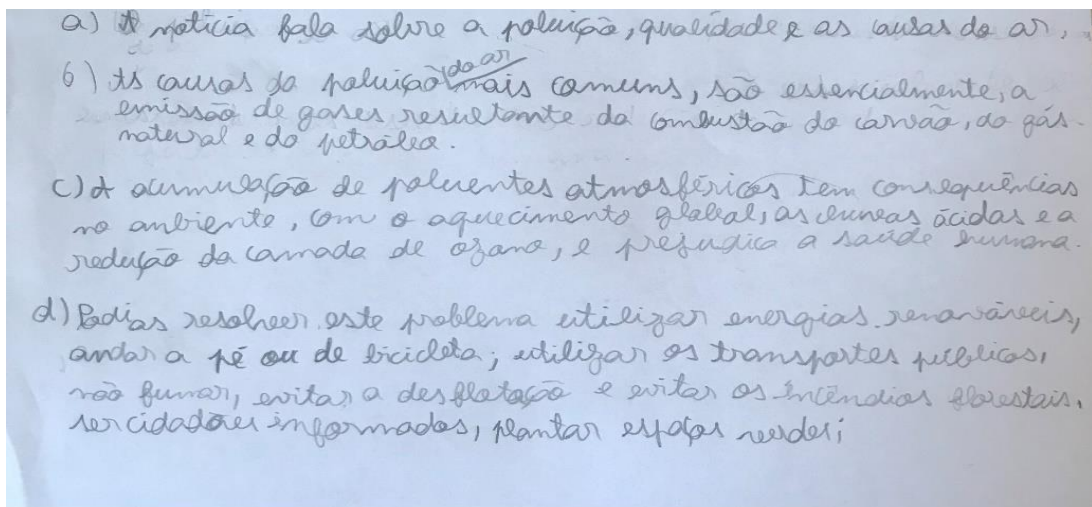 a) A notícia fala sobre a poluição, qualidade e as causas do ar,
b) As causas da poluição do ar mais comuns, são essencialmente, a
emissão de gases resultante da combustão do carvão, do gás
natural e do petróleo.
c) A acumulação de poluentes atmosféricos tem consequências
no ambiente, com o aquecimento global, as chuvas ácidas e a
redução da camada de ozono, e prejudica a saúde humana.
d) Podias resolver este problema utilizar energias renováveis,
andar a pé ou de bicicleta; utilizar os transportes públicos,
não fumar, evitar a desflotação e evitar os incêndios florestais,
ser cidadões informados, plantar espaços verdes;